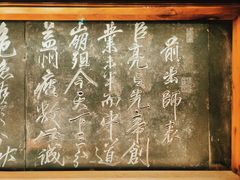 前出師表
臣亮言先帝創
業未半而中道
崩殂今天下三分
益州疲敝此誠
危急存